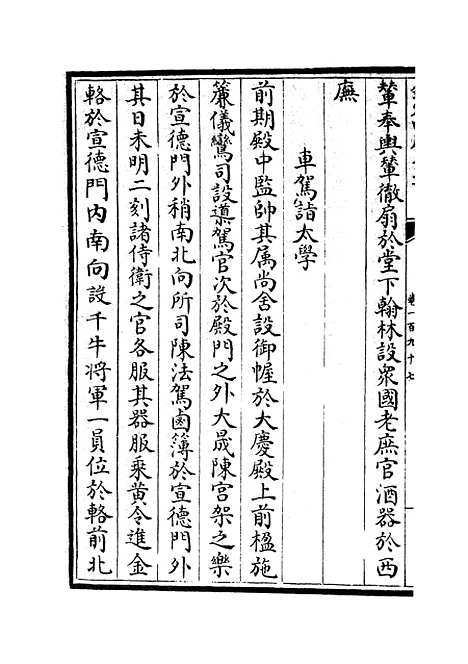 卷一百九十七
輦奉輿輦徹扇於堂下翰林設衆國老庶官酒器於西
廡
車駕詣太學
前期殿中監帥其属尚舍設御幄於大慶殿上前楹施
簾儀鸞司設導駕官次於殿門之外大晟陳宫架之樂
於宣德門外稍南北向所司陳法駕鹵簿於宣德門外
其日未明二刻諸侍衛之官各服其器服乗黄令進金
輅於宣德門内南向設千牛将軍一員位於輅前北